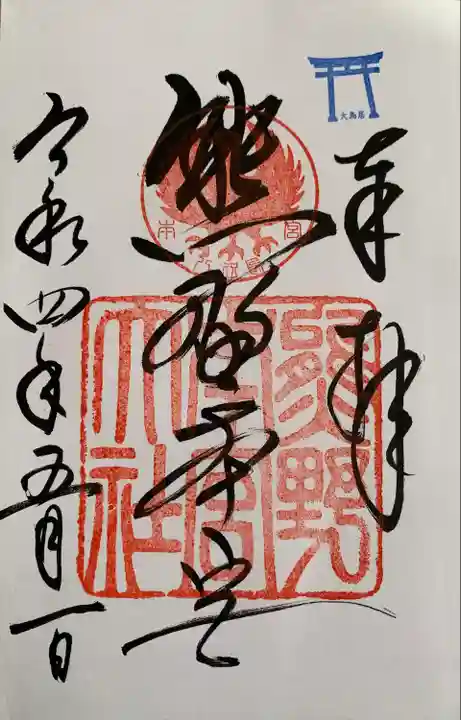 奉拝
大鳥居
熊野本宮
熊野本宮大社
令和四年五月一日